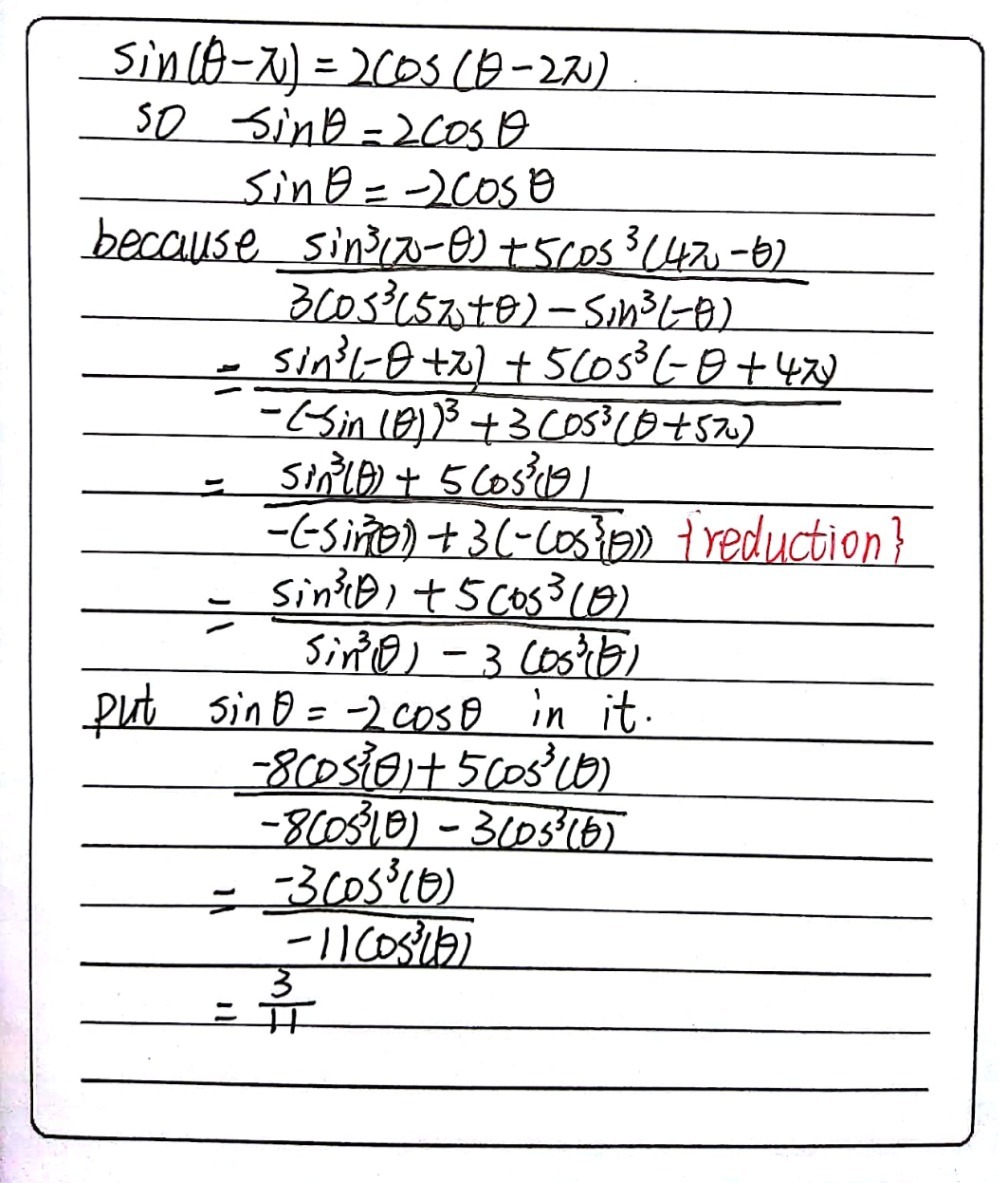 sin(θ-π) = 2cos(θ-2π)
so -sinθ = 2cosθ
sinθ = -2cosθ
because sin³(π-θ) + 5cos³(4π-θ)
3cos³(5π+θ) - sin³(-θ)
= sin³(-θ+π) + 5cos³(-θ+4π)
-(-sin(θ))³ + 3cos³(θ+5π)
= sin³(θ) + 5cos³(θ)
-(-sin³(θ)) + 3(-cos³(θ)) {reduction}
= sin³(θ) + 5cos³(θ)
sin³(θ) - 3cos³(θ)
put sinθ = -2cosθ in it.
-8cos³(θ) + 5cos³(θ)
-8cos³(θ) - 3cos³(θ)
= -3cos³(θ)
-11cos³(θ)
= 3
11